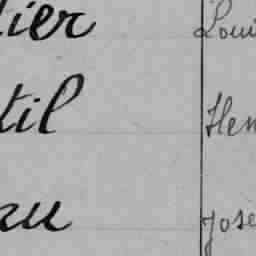 tier Loui
til Hen
au José